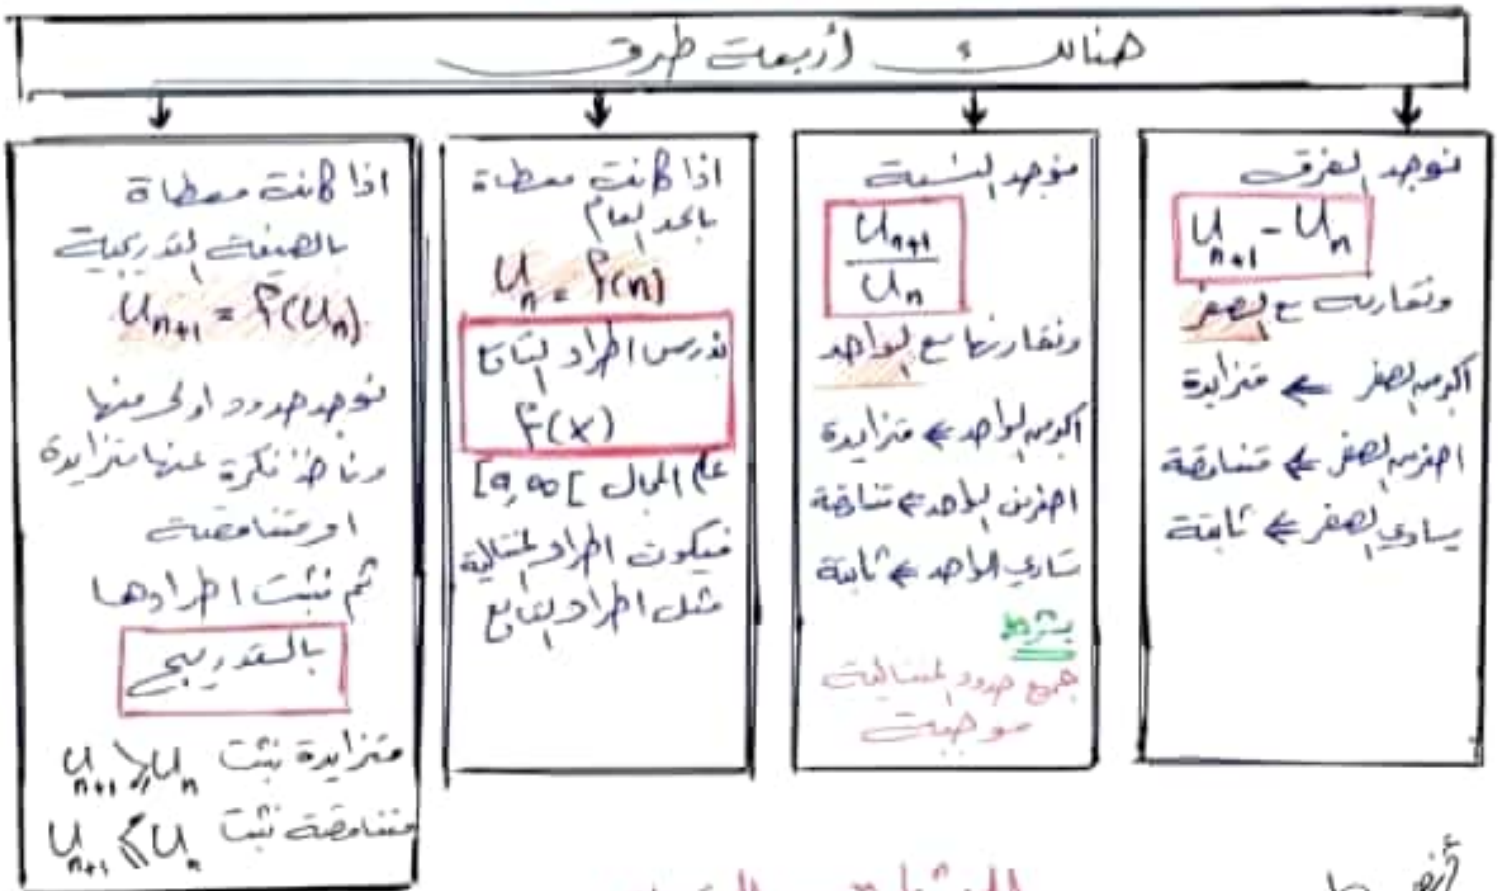 هنالك أربعة طرق
نوجد الفرق
U_{n+1} - U_n
ونقارنه مع الصفر
أكبر من الصفر ⇐ متزايدة
اصغر من الصفر ⇐ متناقصة
يساوي الصفر ⇐ ثابتة
نوجد النسبة
U_{n+1} / U_n
ونقارنها مع الواحد
أكبر من الواحد ⇐ متزايدة
اصغر من الواحد ⇐ متناقصة
تساوي الواحد ⇐ ثابتة
بشرط
جميع حدود المتتالية
موجبة
اذا كانت معطاة
بالحد العام
U_n = f(n)
ندرس اطراد التابع
f(x)
على المجال [0, ∞[
فيكون اطراد المتتالية
مثل اطراد التابع
اذا كانت معطاة
بالصيغة التدريجية
U_{n+1} = f(U_n)
نوجد حدود اولى منها
وناخذ فكرة عنها متزايدة
او متناقصة
ثم نثبت اطرادها
بالتدريج
متزايدة نثبت U_{n+1} ≥ U_n
متناقصة نثبت U_{n+1} ≤ U_n